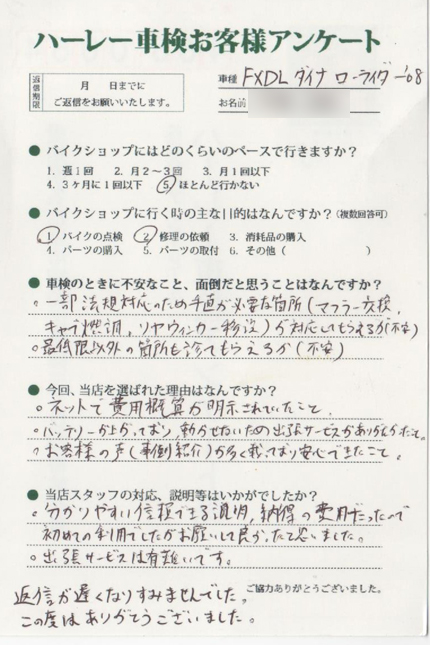 ハーレー車検お客様アンケート
返信期限
月　日までに
ご返信をお願いいたします。
車種 FXDL ダイナ ローライダー '08
お名前
● バイクショップにはどのくらいのペースで行きますか？
1. 週1回　2. 月2～3回　3. 月1回以下
4. 3ヶ月に1回以下　5. ほとんど行かない
● バイクショップに行く時の主な目的はなんですか？（複数回答可）
1. バイクの点検　2. 修理の依頼　3. 消耗品の購入
4. パーツの購入　5. パーツの取付　6. その他（　　　）
● 車検のときに不安なこと、面倒だと思うことはなんですか？
○一部法規対応のため手直が必要な箇所（マフラー交換、
キャブ燃調、リヤウィンカー移設）が対応してもらえるか（不安）
○最低限以外の箇所も診てもらえるか（不安）
● 今回、当店を選ばれた理由はなんですか？
○ネットで費用概算が明示されていたこと、
○バッテリーが上がっており、動かせないため出張サービスがありがたかったこと。
○お客様の声（事例紹介）が多く載っており安心できたこと。
● 当店スタッフの対応、説明等はいかがでしたか？
○分かりやすい信頼できる説明、納得の費用だったので
初めての利用でしたがお願いして良かったと思いました。
○出張サービスは有難いです。
ご協力ありがとうございました。
返信が遅くなりすみませんでした。
この度はありがとうございました。